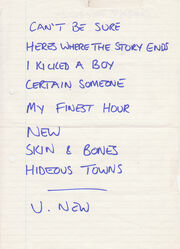 CAN'T BE SURE
HERES WHERE THE STORY ENDS
I KICKED A BOY
CERTAIN SOMEONE
MY FINEST HOUR
NEW
SKIN & BONES
HIDEOUS TOWNS
V. NEW